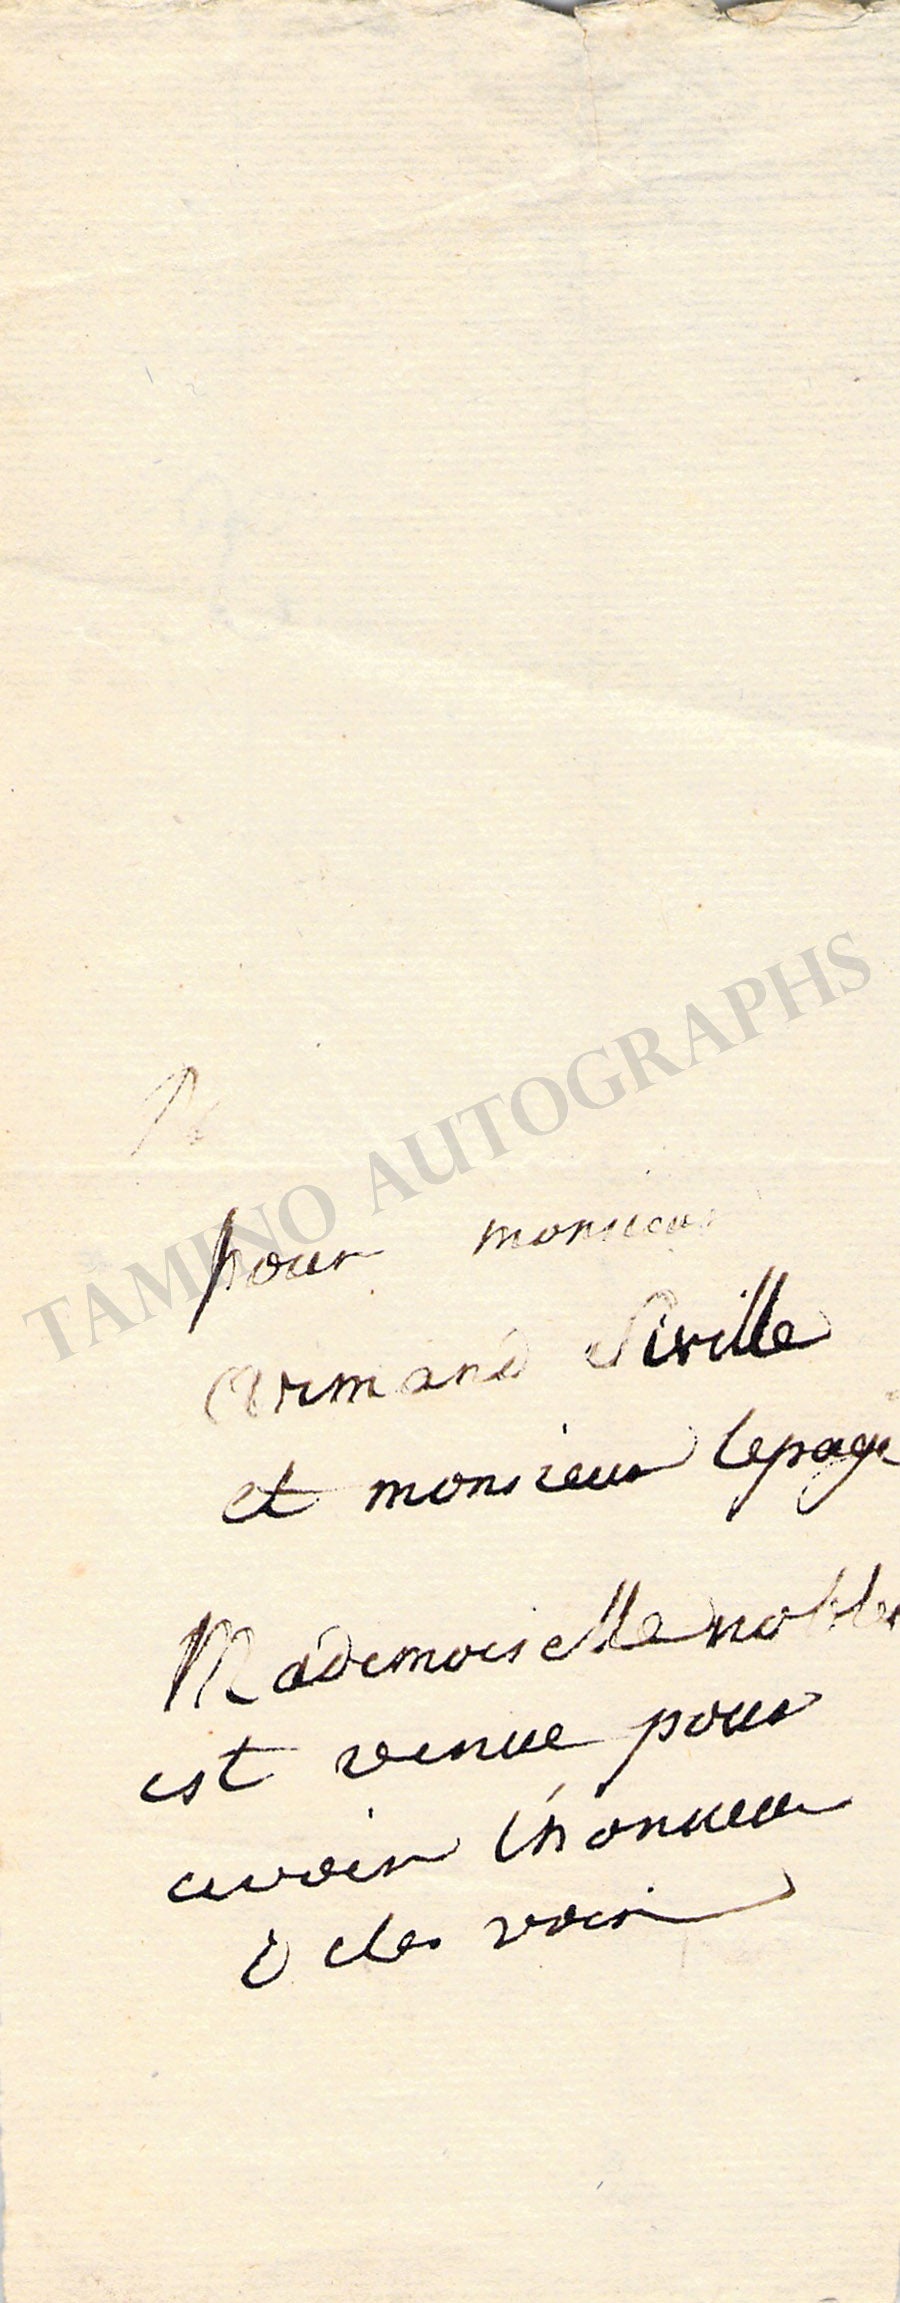 TAMINO AUTOGRAPHS
pour monsieur
Armand Séville
et monsieur lepage
Mademoiselle noblet
est venue pour
avoir l'honneur
de les voir